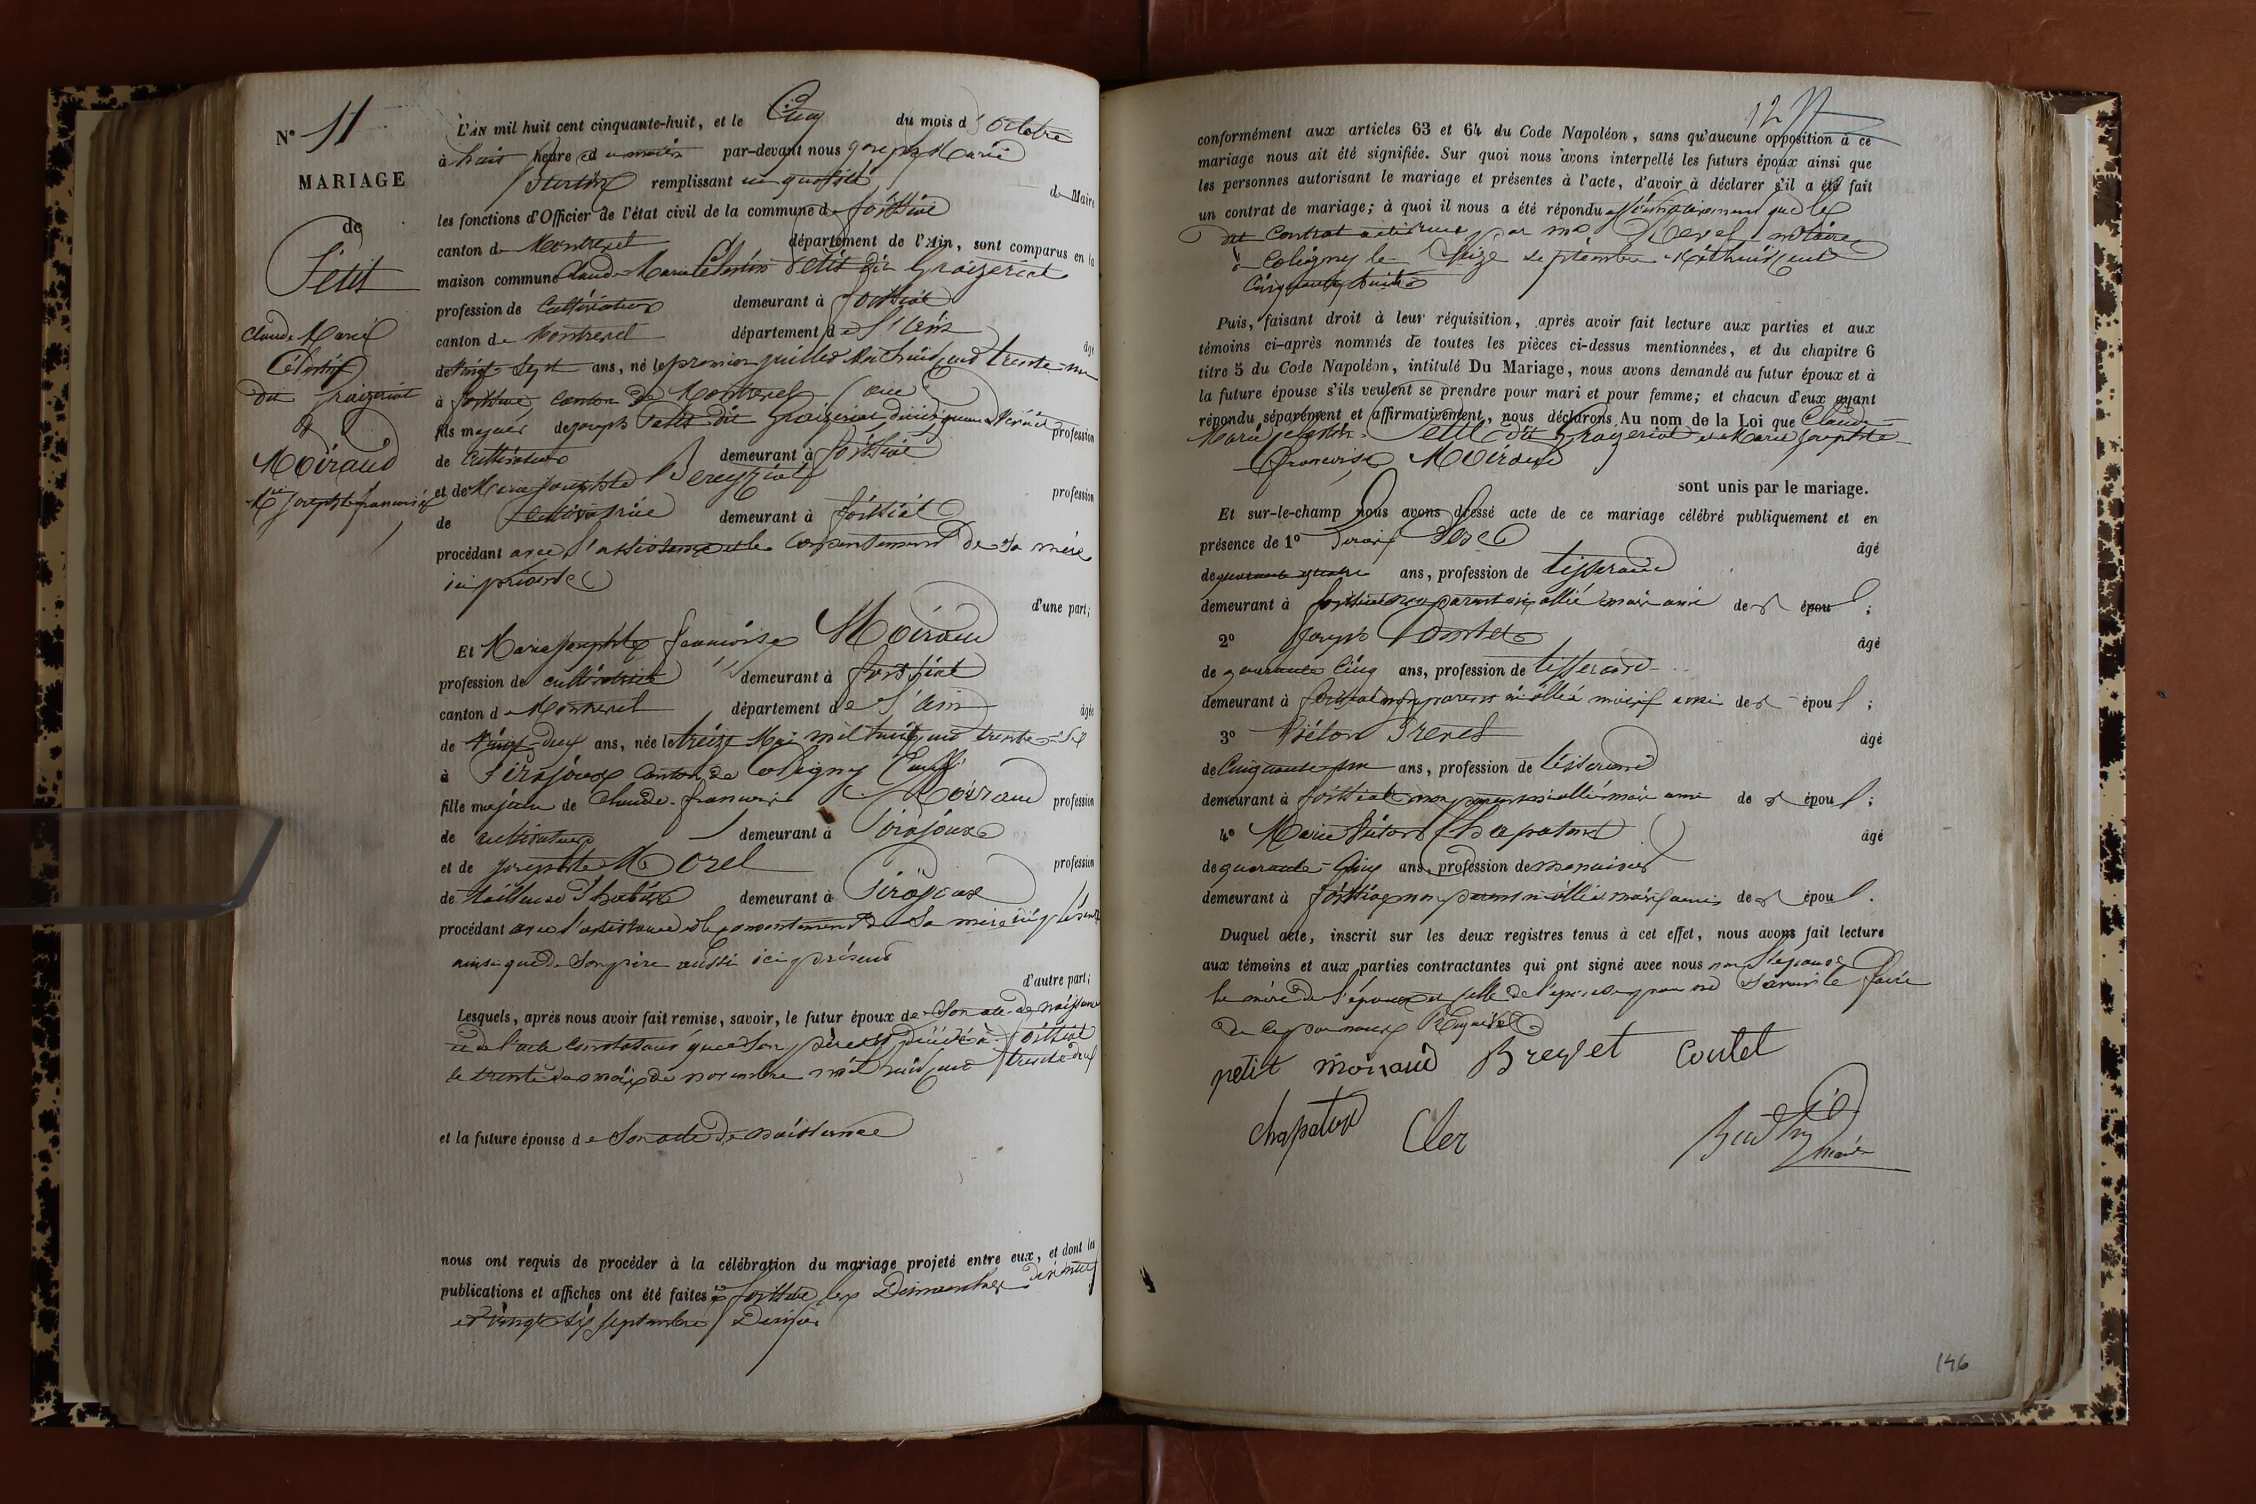 N° 11
MARIAGE
de
Petit
Claude Marie
Célestin
dit Graizeriat
&
Moiraud
Mie Josephte françoise
L'AN mil huit cent cinquante-huit, et le Cinq du mois d'octobre
à huit heure du matin par-devant nous Joseph Marie
remplissant en qualité de Maire
les fonctions d'Officier de l'état civil de la commune de foissiat
canton de Montrevel département de l'Ain, sont comparus en la
maison commune Claude Marie Célestin Petit dit Graizeriat
profession de Cultivateur demeurant à foissiat
canton de Montrevel département de l'ain âgé
de vingt-sept ans, né le premier juillet mil huit cent trente-un
à foissiat canton de Montrevel (ain)
fils majeur de joseph Petit dit Graizeriat profession
de Cultivateur demeurant à foissiat
et de Marie josephte Bereyziat profession
de Cultivatrice demeurant à foissiat
procédant avec l'assistance et le consentement de sa mère
ici présente
d'une part;
Et Marie josephte françoise Moiraud
profession de cultivatrice demeurant à foissiat
canton de Montrevel département de l'ain âgée
de vingt-deux ans, née le treize Mai mil huit cent trente-six
à Pirajoux canton de Coligny
fille majeure de Claude-françois Moiraud profession
de cultivateur demeurant à Pirajoux
et de josephte Morel profession
de tailleuse d'habits demeurant à Pirajoux
procédant avec l'assistance et le consentement de sa mère ici présente
ainsi que de son père aussi ici présent
d'autre part;
Lesquels, après nous avoir fait remise, savoir, le futur époux de son acte de naissance
et de l'acte constatant que son père est décédé à foissiat
le trente du mois de novembre mil huit cent trente-deux
et la future épouse de son acte de naissance
nous ont requis de procéder à la célébration du mariage projeté entre eux, et dont les
publications et affiches ont été faites à foissiat les Dimanches dix neuf
et vingt six septembre Dernier
conformément aux articles 63 et 64 du Code Napoléon, sans qu'aucune opposition à ce
mariage nous ait été signifiée. Sur quoi nous avons interpellé les futurs époux ainsi que
les personnes autorisant le mariage et présentes à l'acte, d'avoir à déclarer s'il a été fait
un contrat de mariage; à quoi il nous a été répondu affirmativement que le
dit contrat a été reçu par me notaire
à Coligny le seize septembre mil huit cent
cinquante huit
Puis, faisant droit à leur réquisition, après avoir fait lecture aux parties et aux
témoins ci-après nommés de toutes les pièces ci-dessus mentionnées, et du chapitre 6
titre 5 du Code Napoléon, intitulé Du Mariage, nous avons demandé au futur époux et à
la future épouse s'ils veulent se prendre pour mari et pour femme; et chacun d'eux ayant
répondu séparément et affirmativement, nous déclarons Au nom de la Loi que Claude
Marie célestin Petit dit Grazeriat et Marie josephte
françoise Moiraud
sont unis par le mariage.
Et sur-le-champ nous avons dressé acte de ce mariage célébré publiquement et en
présence de 1° âgé
de quarante quatre ans, profession de tisserand
demeurant à foissiat non parent ni allié mais ami des époux;
2° Joseph Coutet âgé
de quarante cinq ans, profession de tisserand
demeurant à foissiat non parent ni allié mais ami des époux;
3° âgé
de cinquante un ans, profession de tisserand
demeurant à foissiat non parent ni allié mais ami des époux;
4° Marie âgé
de quarante-cinq ans, profession de menuisier
demeurant à foissiat non parent ni allié mais ami des époux.
Duquel acte, inscrit sur les deux registres tenus à cet effet, nous avons fait lecture
aux témoins et aux parties contractantes qui ont signé avec nous non l'épouse
la mère de l'époux et celle de l'épouse pour ne savoir le faire
de ce par nous Requises
petit moiraud Breyset Coutet
chapatux Cler
maire
146